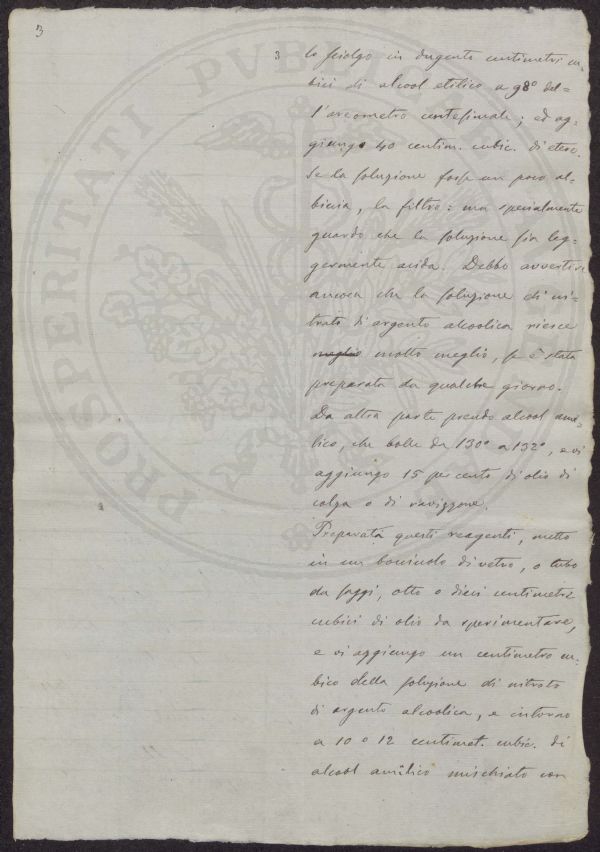 3
3
lo sciolgo in dugento centimetri cu-
bici di alcool etilico a 98° del-
l'areometro centesimale; ed ag-
giungo 40 centim. cubic. di etere.
Se la soluzione fosse un poco al-
biccia, la filtro: ma specialmente
guardo che la soluzione sia leg-
germente acida. Debbo avvertire
ancora che la soluzione di ni-
trato di argento alcoolica riesce
meglio molto meglio, se è stata
preparata da qualche giorno.
Da altra parte prendo alcool ami-
lico, che bolle da 130° a 132°, e vi
aggiungo 15 per cento di olio di
colza o di ravizzone.
Preparata questi reagenti, metto
in un bocciuolo di vetro, o tubo
da saggi, otto o dieci centimetri
cubici di olio da sperimentare,
e vi aggiungo un centimetro cu-
bico della soluzione di nitrato
di argento alcoolica, e intorno
a 10 o 12 centimet. cubic. di
alcool amilico mischiato con
PROSPERITATI PVBL